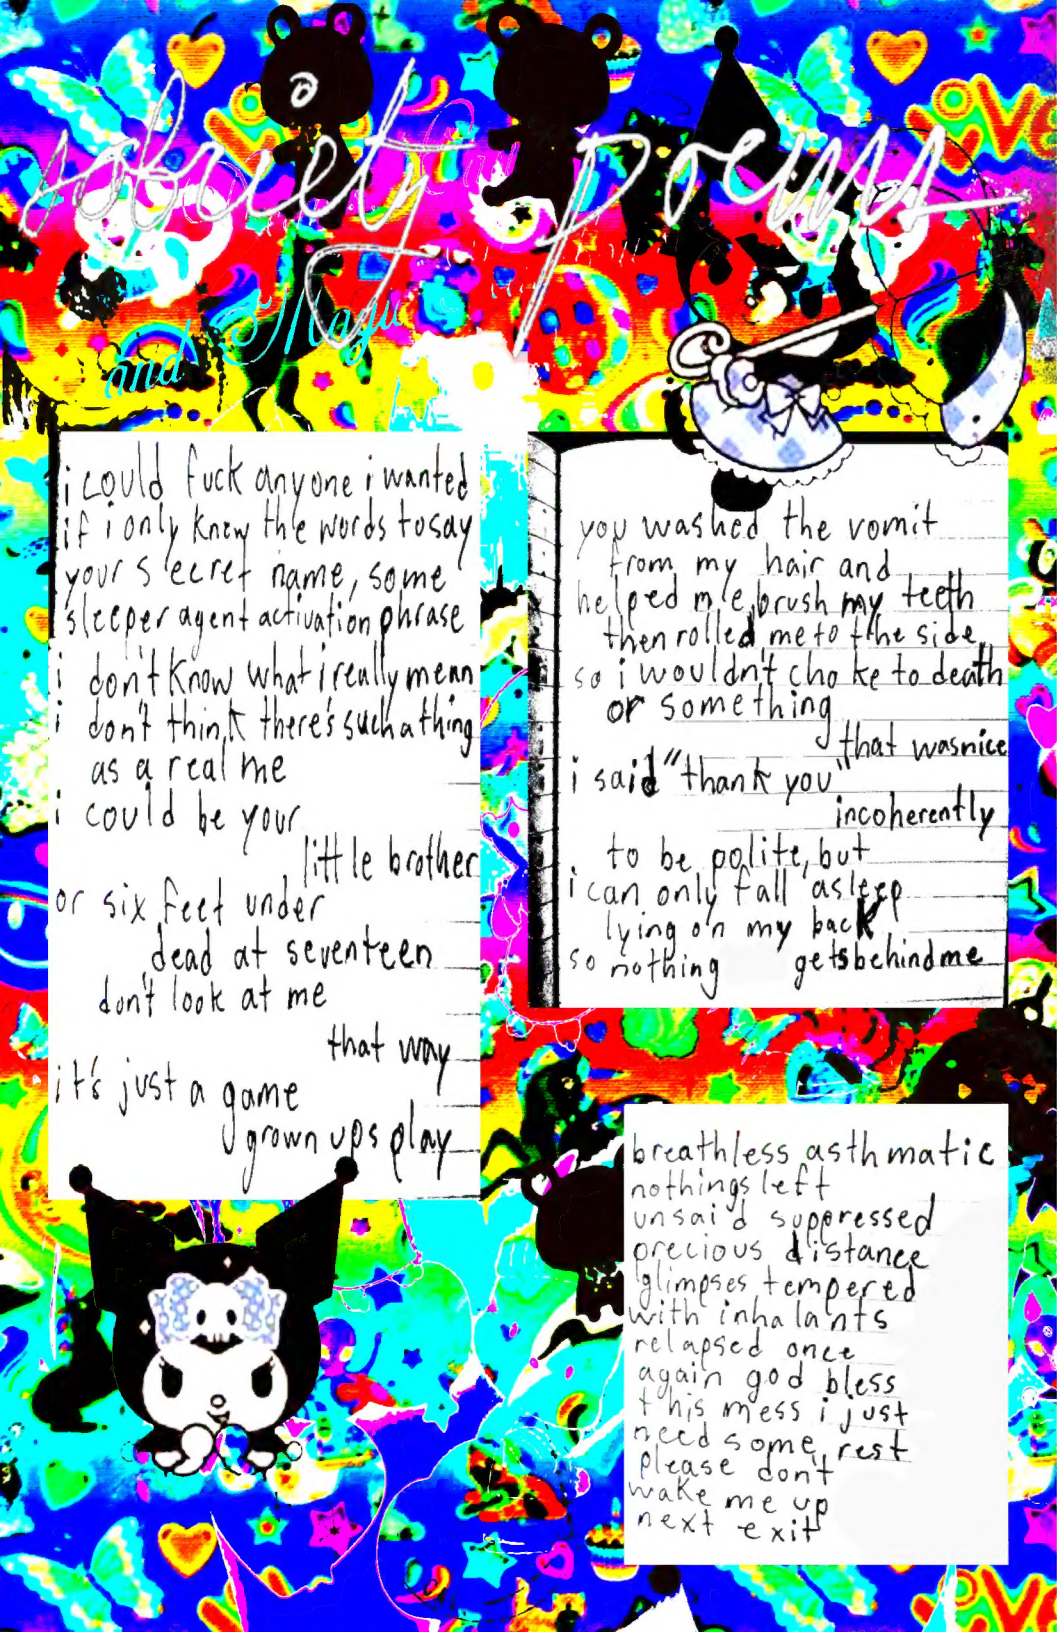 sobriety poems
and Magic
LOVE
LOVE
i could fuck anyone i wanted
if i only knew the words to say
your secret name, some
sleeper agent activation phrase
i don't know what i really mean
i don't think there's such a thing
as a real me
i could be your
little brother
or six feet under
dead at seventeen
don't look at me
that way
it's just a game
grown ups play
you washed the vomit
from my hair and
helped me brush my teeth
then rolled me to the side
so i wouldn't choke to death
or something
that was nice
i said "thank you"
incoherently
to be polite, but
i can only fall asleep
lying on my back
so nothing gets behind me
breathless asthmatic
nothings left
unsaid suppressed
precious distance
glimpses tempered
with inhalants
relapsed once
again god bless
this mess i just
need some rest
please don't
wake me up
next exit